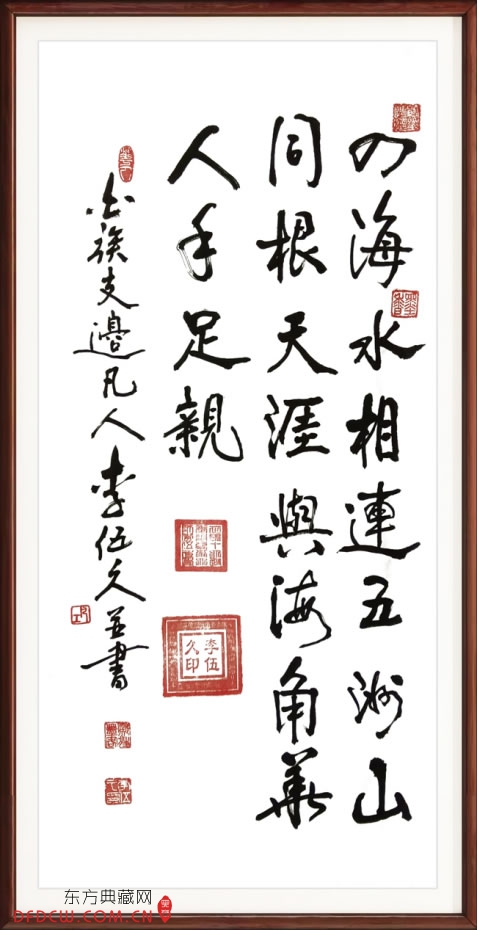 四海水相連五洲山
同根天涯與海角華
人手足親
白族支邊凡人李伍久並書
李伍久印
东方典藏网
DFDCW.COM.CN